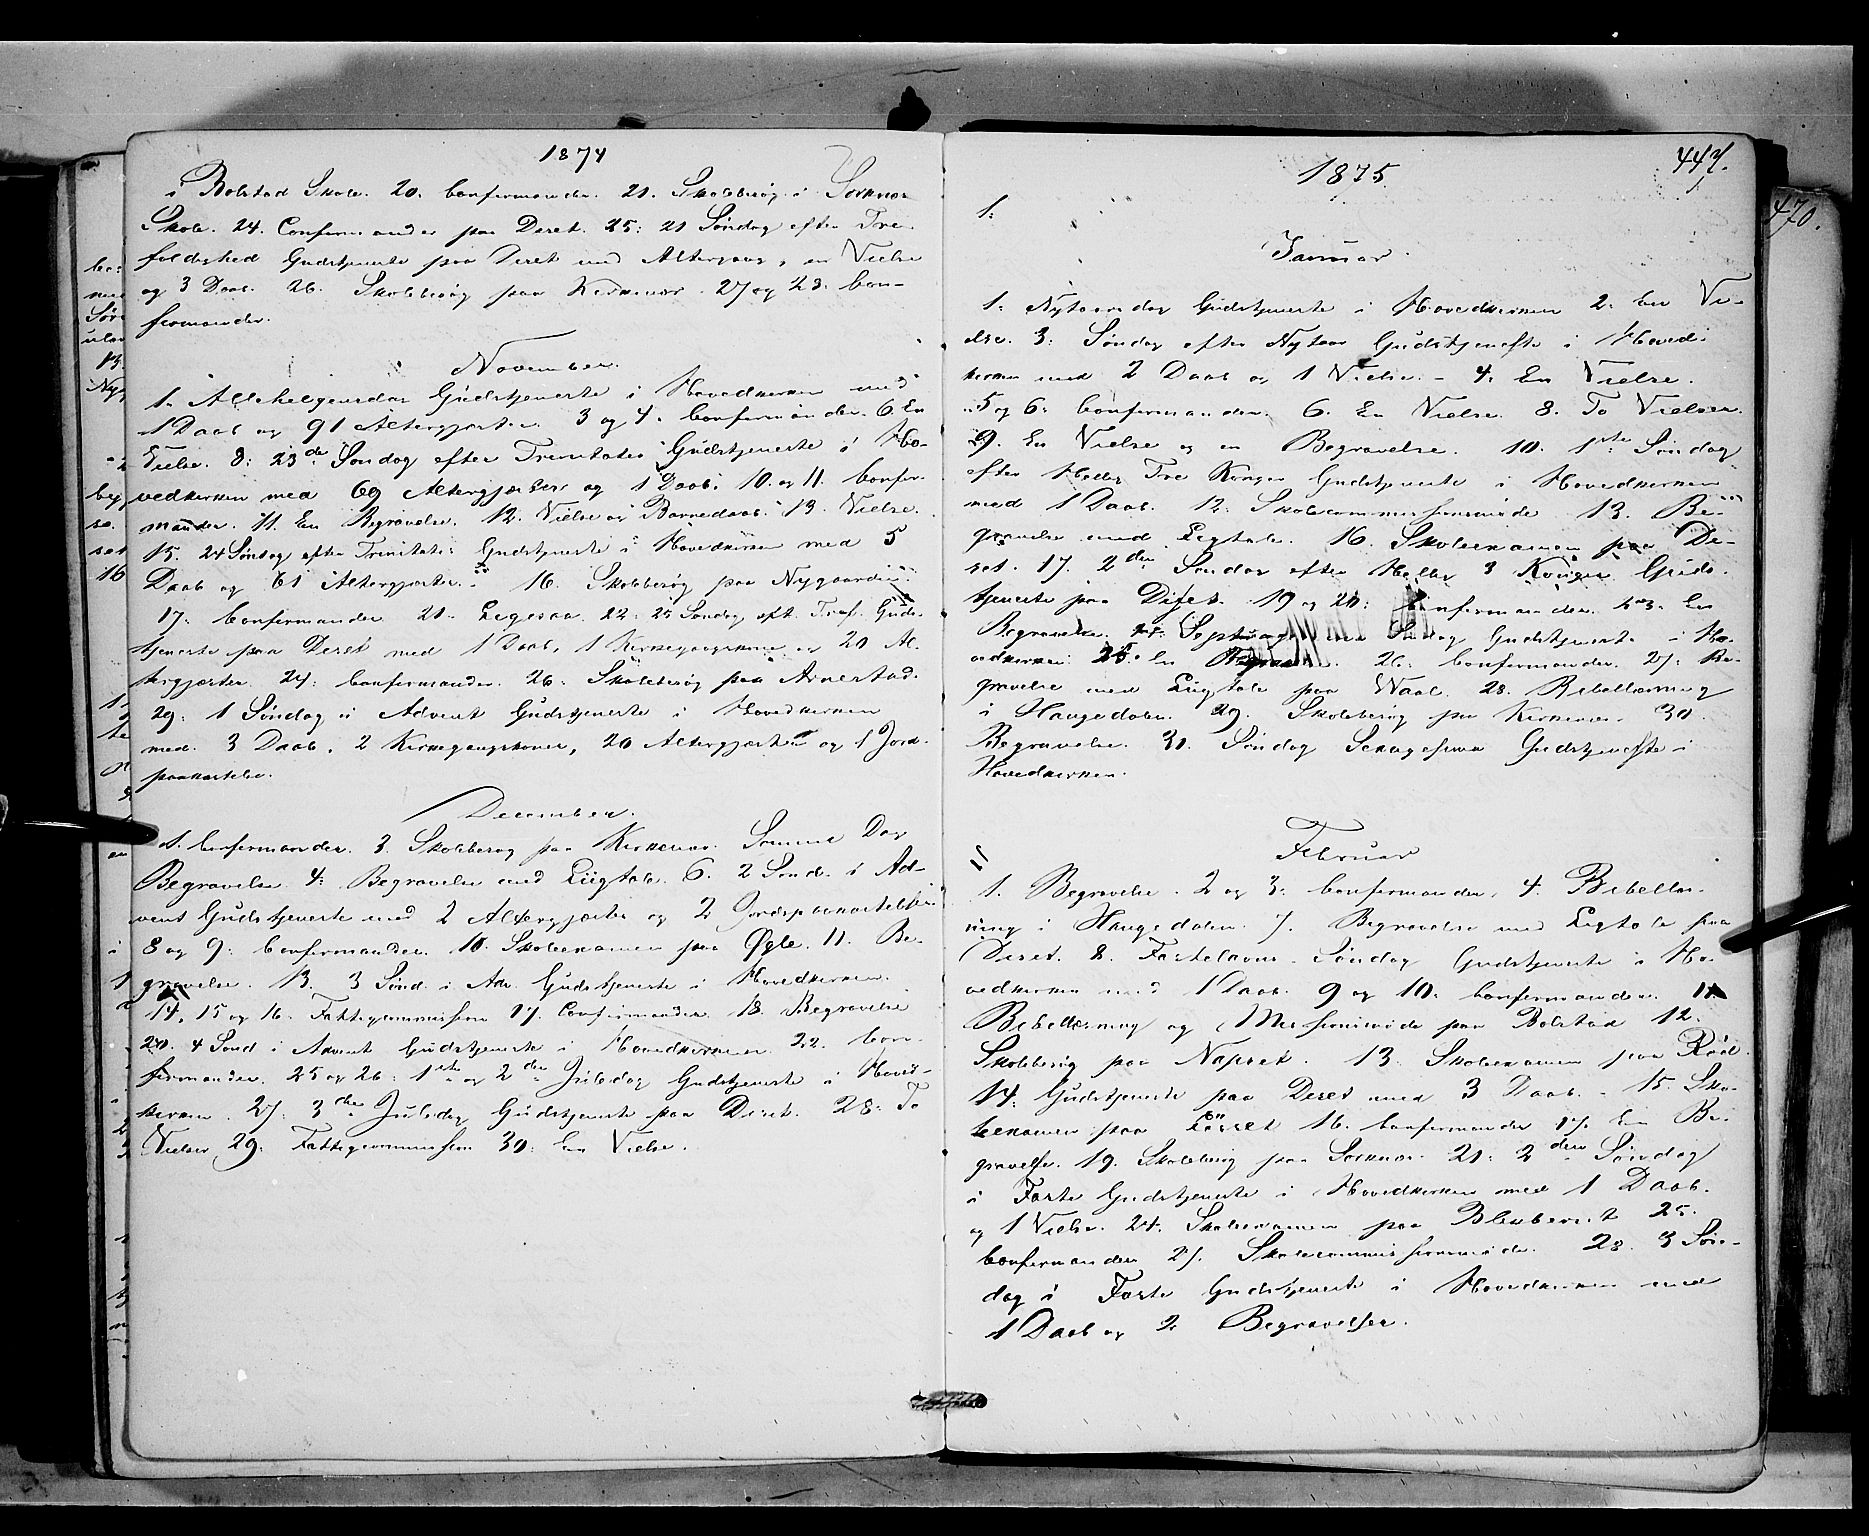 1874
i Bolstad Skole. 20. Confirmander. 21. Skolebesøg i Sorknæs
Skole. 24. Confirmander paa Deset. 25: 21 Søndag efter Tre-
foldighed Gudstjeneste paa Deset med Altergang, en Vielse
og 3 Daab. 26. Skolebesøg paa Kirkenær. 27 og 28. Con-
firmander.
November.
1. Allehelgensdag Gudstjeneste i Hovedkirken med
1 Daab og 91 Altergjæster. 3 og 4. Confirmander. 6. En
Vielse. 8: 23de Søndag efter Trinitatis Gudstjeneste i Ho-
vedkirken med 69 Altergjæster og 1 Daab. 10. og 11. Confir-
mander. 11. En Begravelse. 12. Vielse og Barnedaab. 13. Vielse.
15. 24 Søndag efter Trinitatis Gudstjeneste i Hovedkirken med 5
Daab og 61 Altergjæster. 16. Skolebesøg paa Nygaard
17. Confirmander 21. 22: 25 Søndag eft. Tref. Guds-
tjeneste paa Deset med 1 Daab, 1 Kirkegangskone og 20 Al-
tergjæster. 24: Confirmander. 26. Skolebesøg paa Arnestad.
29: 1 Søndag i Advent Gudstjeneste i Hovedkirken
med 3 Daab, 2 Kirkegangskoner, 20 Altergjæster og 1 Jord-
paakastelse.
December.
1. Confirmander. 3. Skolebesøg paa Kirkenær. Samme Dag
Begravelse 4: Begravelse med Liigtale. 6. 2 Sønd. i Ad-
vent Gudstjeneste med 2 Altergjæster og 2 Jordspaakastelser
8 og 9: Confirmander. 10. Skoleexamen paa Øgle. 11. Be-
gravelse. 13. 3 Sønd. i Adv. Gudstjeneste i Hovedkirken.
14, 15 og 16. Fattigcommission 17. Confirmander. 18. Begravelse
20. 4 Sønd i Advent Gudstjeneste i Hovedkirken 22. Con-
firmander. 25 og 26: 1ste og 2den Juledag Gudstjeneste i Hoved-
kirken. 27: 3die Juledag Gudstjeneste paa Deset. 28: To
Vielser 29. Fattigcommission 30: En Vielse.
447.
470.
1875.
1.
Januar.
1. Nytaarsdag Gudstjeneste i Hovedkirken 2. En Vi-
else. 3: Søndag efter Nytaar Gudstjeneste i Hoved-
kirken med 2 Daab og 1 Vielse. – 4: En Vielse.
5 og 6: Confirmander. 6. En Vielse. 8. To Vielser.
9. En Vielse og en Begravelse. 10. 1ste Søndag
efter Hellig Tre Konger Gudstjeneste i Hovedkirken
med 1 Daab. 12. Skolecommissionsmøde 13. Be-
gravelse med Ligtale. 16. Skoleexamen paa De-
set. 17. 2den Søndag efter Hellig 3 Konger Guds-
tjeneste paa Deset. 19 og 20: Confirmander. En
Begravelse. Søndag Gudstjeneste i Ho-
vedkirken. 25. En Begravelse. 26. Confirmander. 27. Be-
gravelse med Liigtale paa Naab. 28. Bibellæsning
i Haugedalen. 29. Skolebesøg paa Kirkenær. 30.
Begravelse. 31. Søndag Sexagesima Gudstjeneste i
Hovedkirken.
Februar
1. Begravelse. 2 og 3: Confirmander. 4. Bibellæs-
ning i Haugedalen. 7. Begravelse med Ligtale paa
Deset. 8. Fastelavns-Søndag Gudstjeneste i Ho-
vedkirken med 1 Daab. 9 og 10: Confirmander. 11.
Bibellæsning og Missionsmøde paa Bolstad 12.
Skolebesøg paa Napset. 13. Skoleexamen paa Rød.
14: Gudstjeneste paa Deset med 3 Daab. – 15. Sko-
leexamen paa 16. Confirmander 17. En Be-
gravelse. 19. Skolebesøg paa Sorknæs. 21: 2den Søndag
i Faste Gudstjeneste i Hovedkirken med 1 Daab.
og 1 Vielse. 24. Skoleexamen paa 25.
Confirmander 27. Skolecommissionsmøde. 28. 3 Søn-
dag i Faste Gudstjeneste i Hovedkirken med
1 Daab og 2 Begravelser.